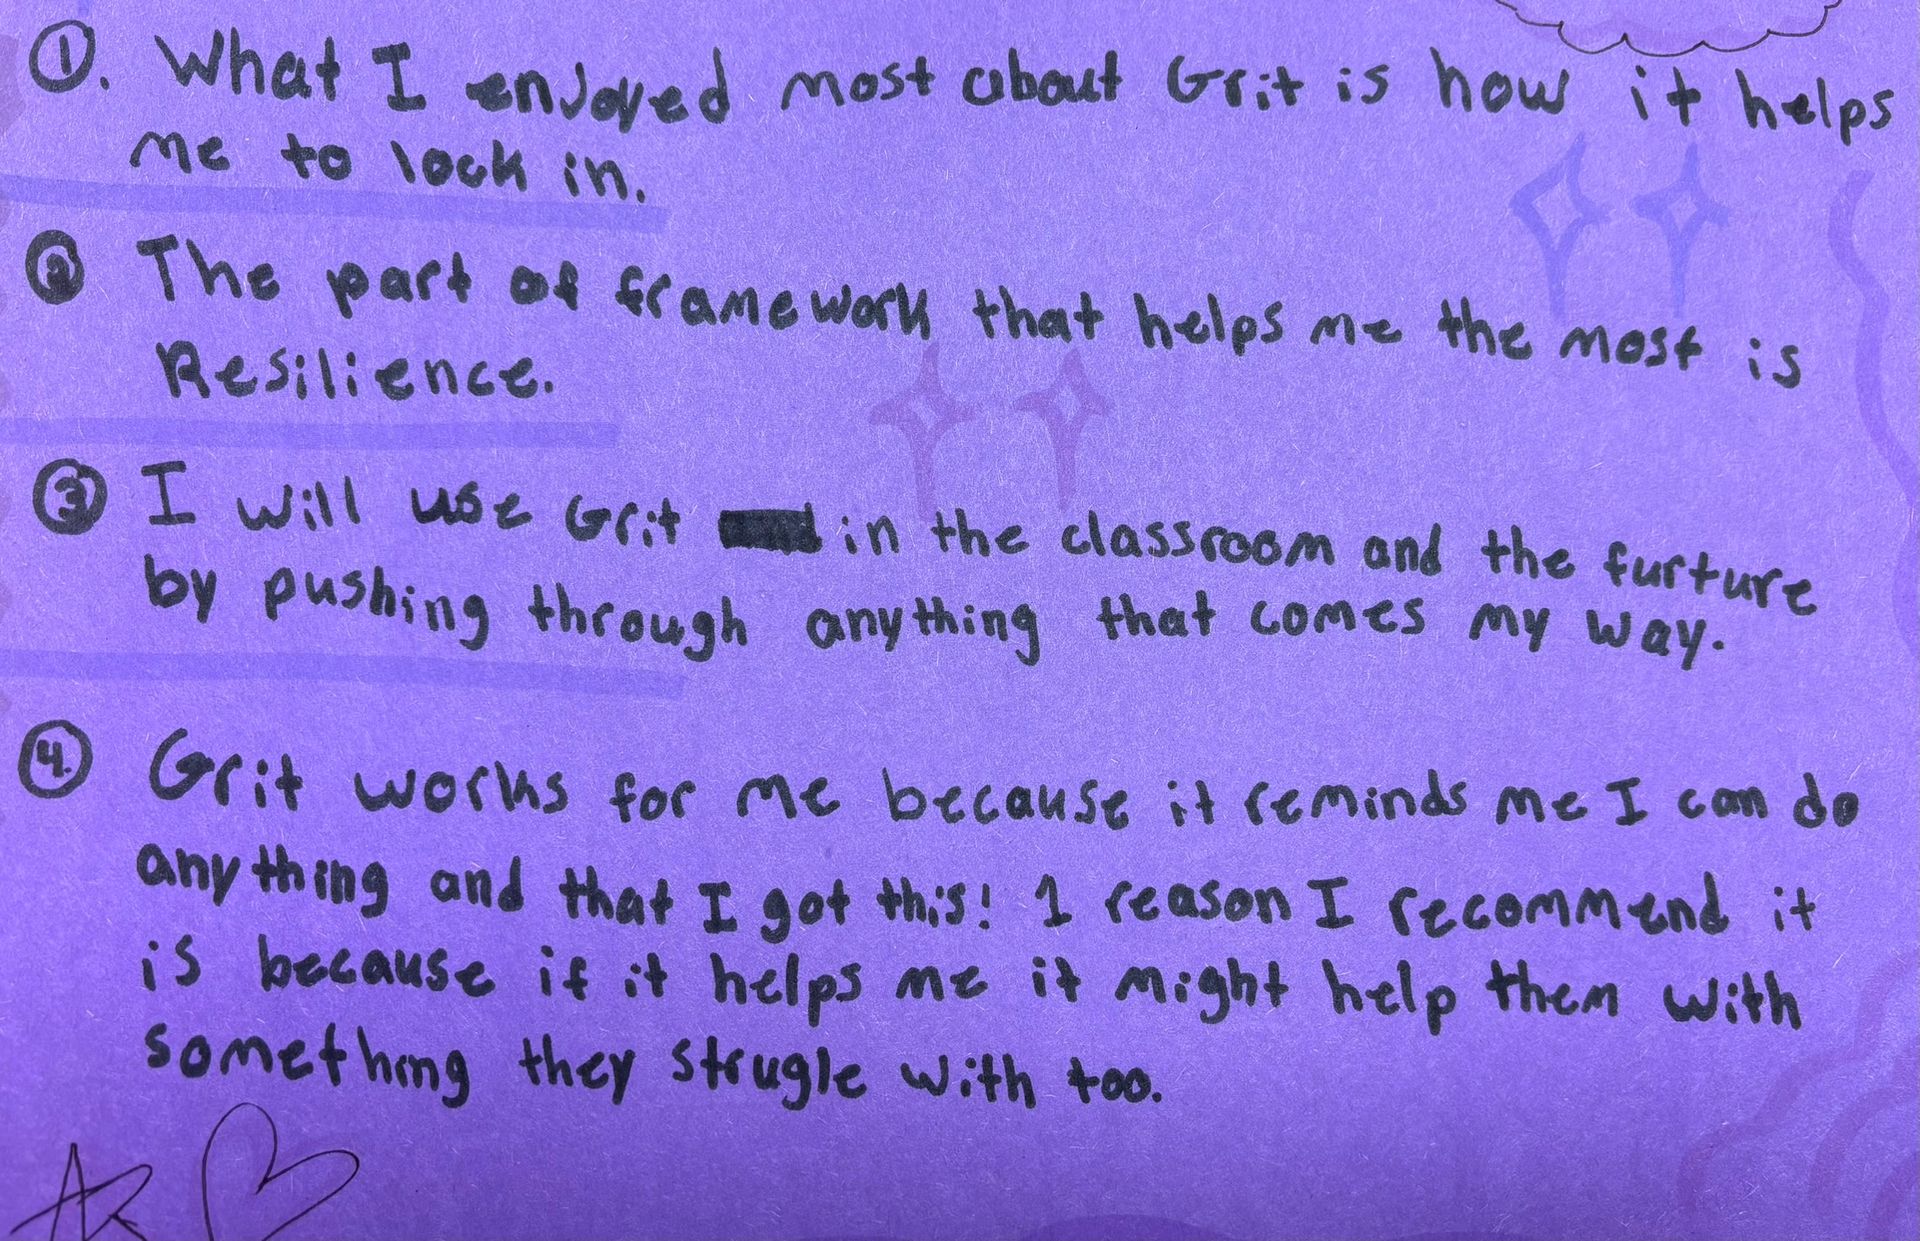 1. What I enjoyed most about Grit is how it helps
me to lock in.
2 The part of framework that helps me the most is
Resilience.
3 I will use Grit in the classroom and the furture
by pushing through anything that comes my way.
4. Grit works for me because it reminds me I can do
anything and that I got this! 1 reason I recommend it
is because if it helps me it might help them with
something they strugle with too.